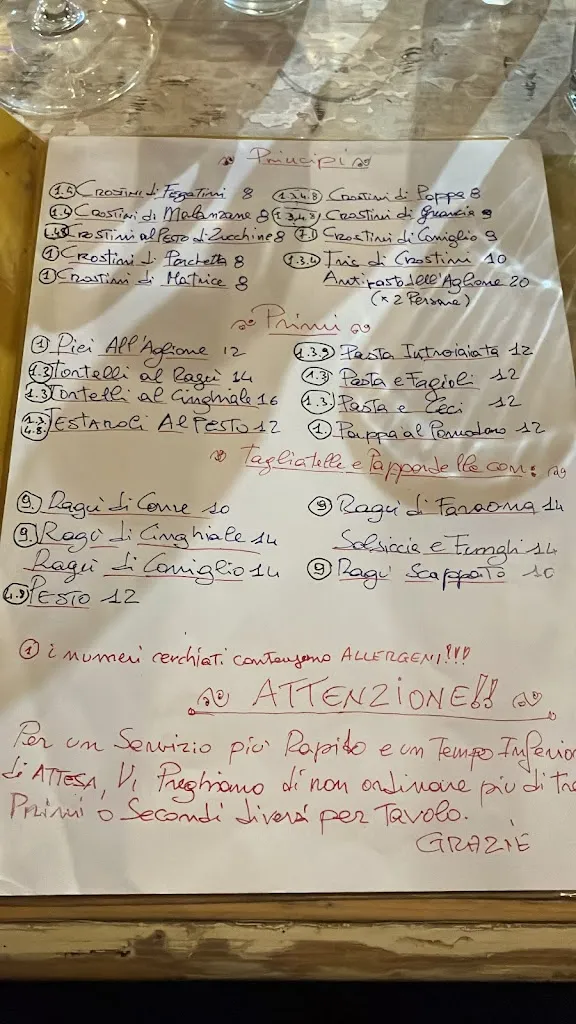 Principi
1.4 Crostini di Fegatini 8
1.4 Crostini di Melanzane 8
4.8 Crostini al Pesto di Zucchine 8
1 Crostini di Porchetta 8
1 Crostini di Matrice 8
1.3.4.8 Crostini di Poppa 8
1.3.4.8 Crostini di Guancia 9
7.1 Crostini di Coniglio 9
1.3.4 Tris di Crostini 10
Antipasto dell'Aglione 20
(x 2 Persone)
Primi
1 Pici All'Aglione 12
1.3 Tortelli al Ragù 14
1.3 Tortelli al Cinghiale 16
4.8 Testaroli Al Pesto 12
1.3.9 Pasta Introiaiata 12
1.3 Pasta e Fagioli 12
1.3. Pasta e Ceci 12
1 Pappa al Pomodoro 12
Tagliatelle e Pappardelle con:
9 Ragù di Carne 10
9. Ragù di Cinghiale 14
Ragù di Coniglio 14
4.8 Pesto 12
9 Ragù di Faraona 14
Salsiccia e Funghi 14
9 Ragù Scappato 10
1 i numeri cerchiati contengono ALLERGENI!!!
ATTENZIONE!!
Per un Servizio più Rapido e un Tempo Inferior
di ATTESA, Vi Preghiamo di non ordinare più di tre
Primi o Secondi diversi per Tavolo.
GRAZIE